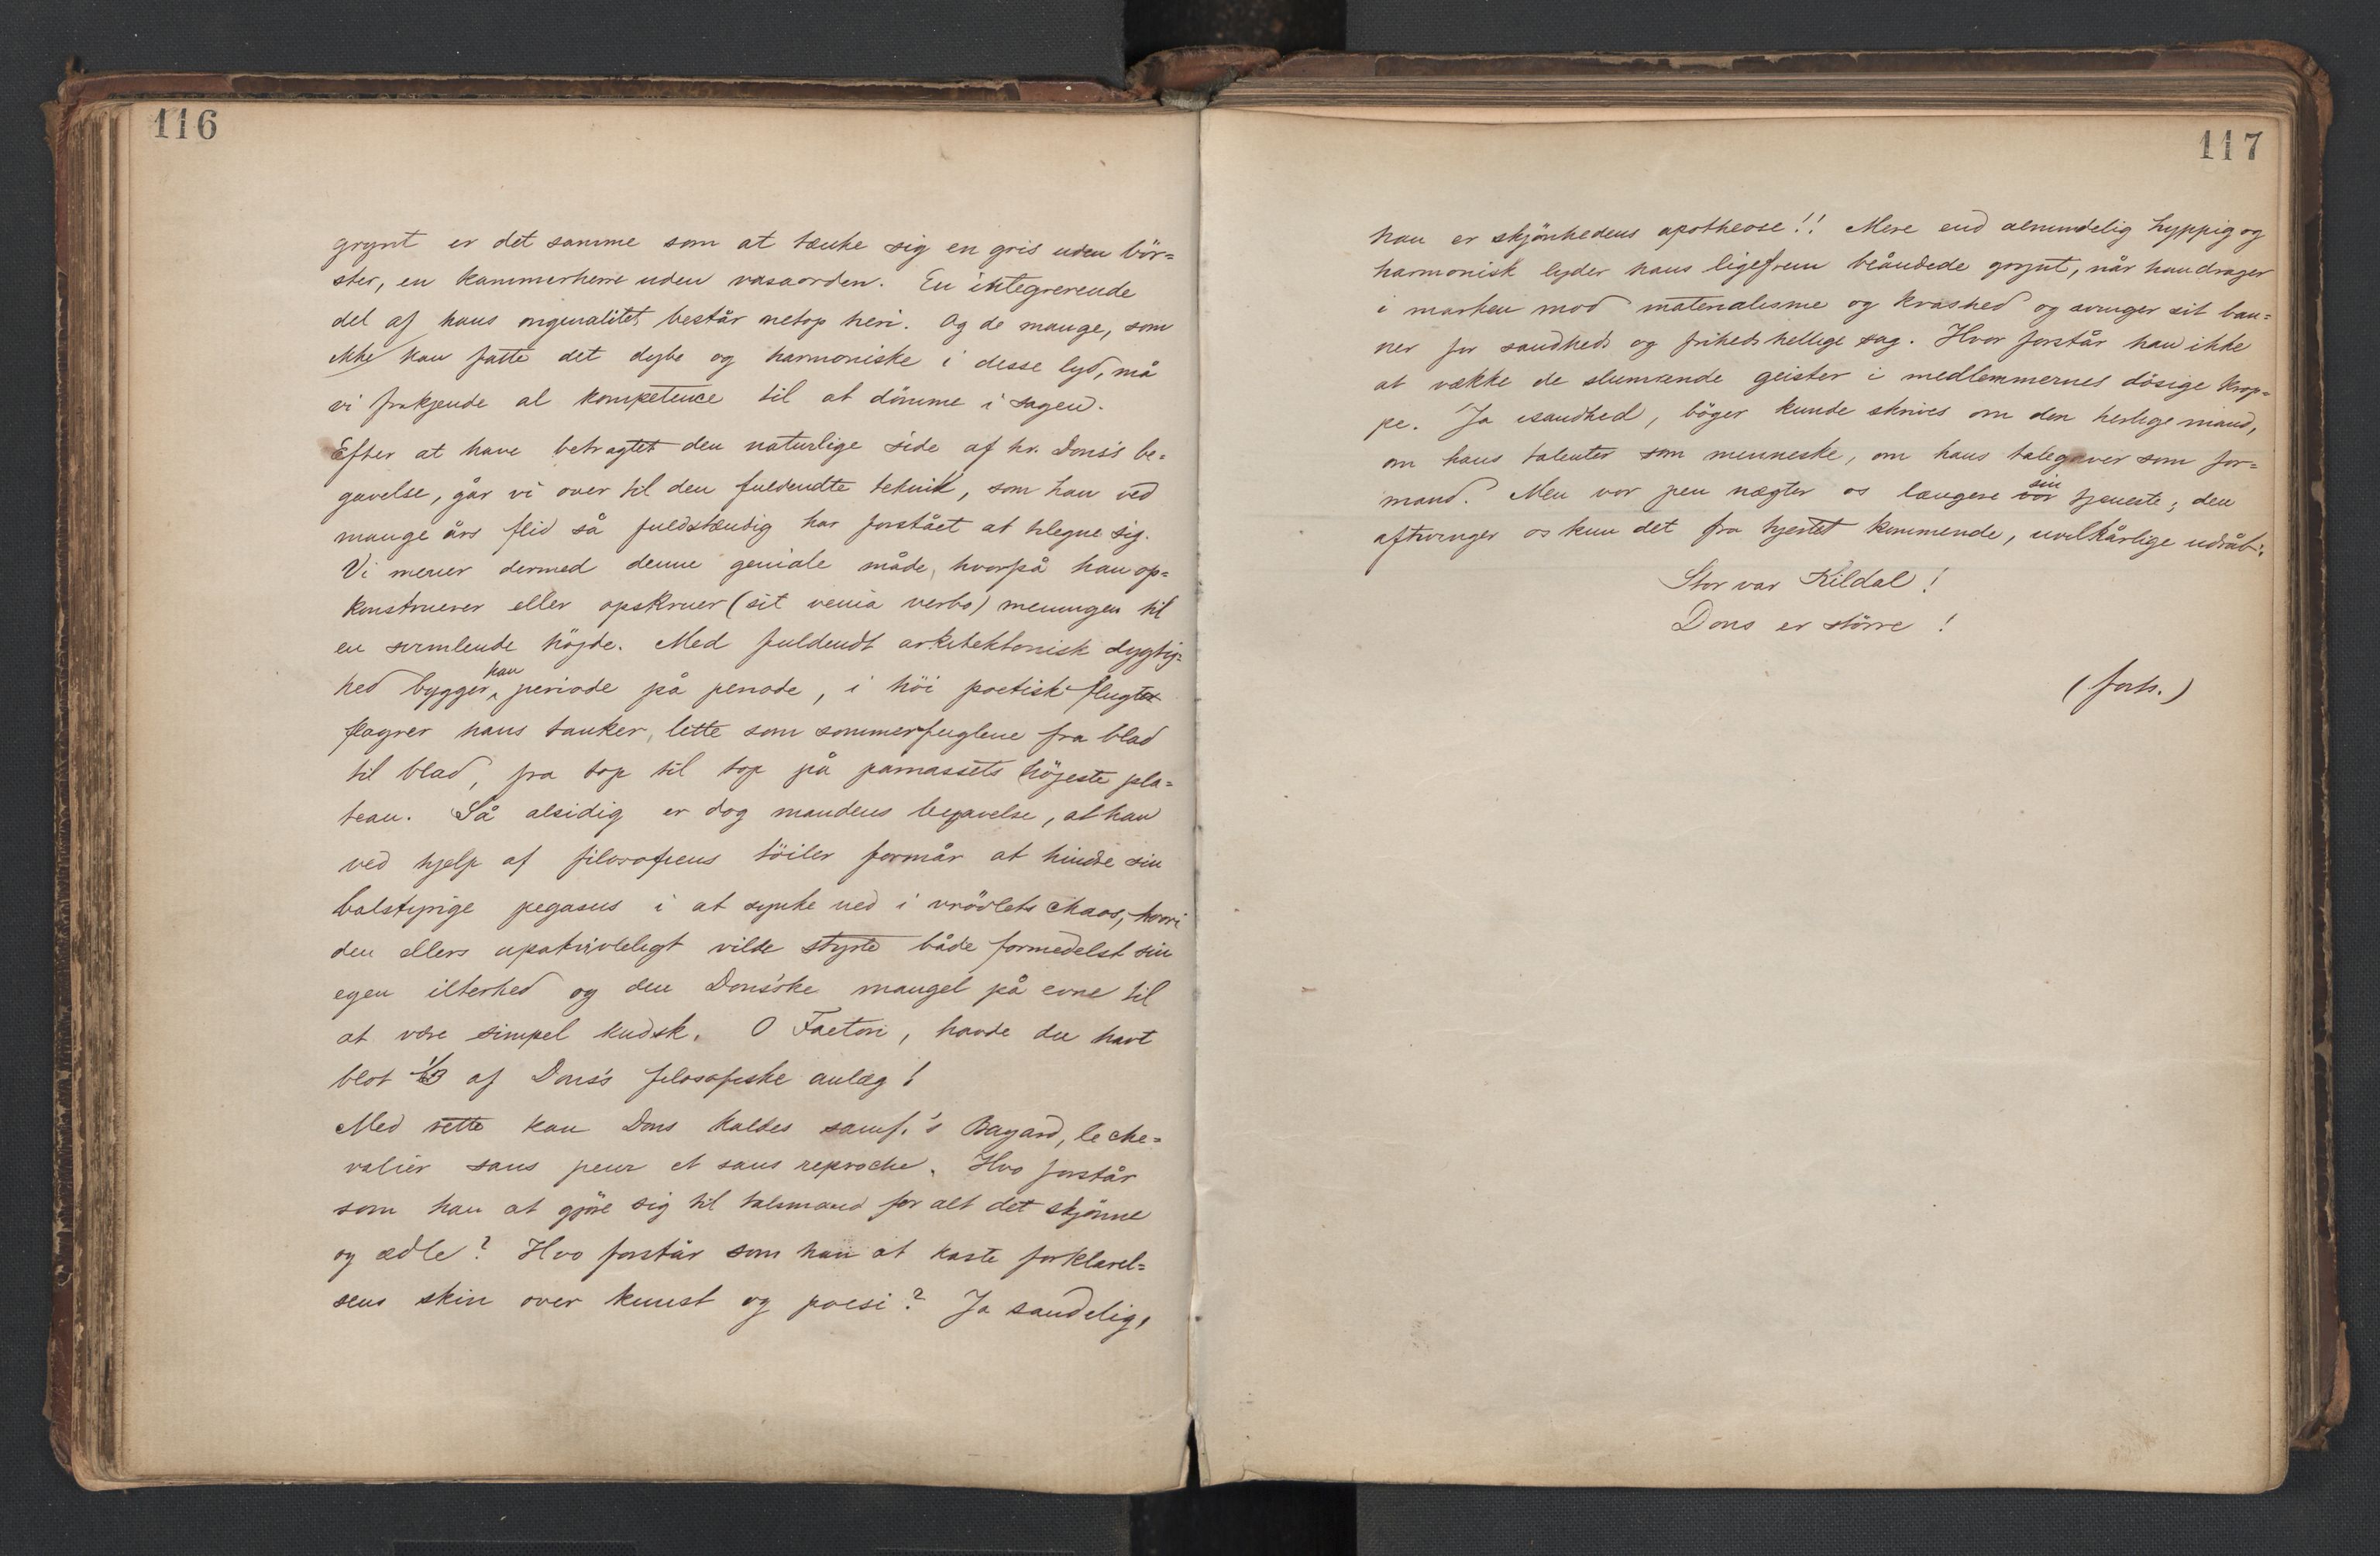 116
grynt er det samme som at tænke sig en gris uden bör=
ster, en kammerherre uden vasaorden. En integrerende
del af hans originalitet består netop heri. Og de mange, som
ikke kan fatte det dybe og harmoniske i desse lyd, må
vi frakjende al kompetence til at dömme i sagen.
Efter at have betragtet den naturlige side af hr. Dons's be=
gavelse, går vi over til den fuldendte teknik, som han ved
mange års flid så fuldstændig har forstået at tilegne sig.
Vi mener dermed denne geniale måde, hvorpå han op=
konstruerer eller opskruer (sit venia verbo) meningen til
en svimlende höjde. Med fuldendt arkitektonisk dygtig=
hed bygger han periode på periode, i höi poetisk flugt
flagrer hans tanker, lette som sommerfuglene fra blad
til blad, fra top til top på parnassets höjeste pla=
teau. Så alsidig er dog mandens begavelse, at han
ved hjelp af filosofiens töiler formår at hindre sin
balstyrige pegasus i at synke ned i vrövlets chaos, hvori
den ellers upåtvivleligt vilde styrte både formedelst sin
egen ilterhed og den Dons'ske mangel på evne til
at være simpel kudsk. O Faeton, havde du havt
blot 1/3 af Dons's filosofiske anlæg!
Med rette kan Dons kaldes samf.'s Bayard, le che=
valier sans peur et sans reproche. Hvo forstår
som han at gjöre sig til talsmand for alt det skjönne
og ædle? Hvo forstår som han at kaste forklarel=
sens skin over kunst og poesi? Ja sandelig,
117
han er skjönhedens apotheose!! Mere end almindelig hyppig og
harmonisk lyder hans ligefrem beåndede grynt, når han drager
i marken mod materialisme og kråshed og svinger sit ban=
ner for sandheds og friheds hellige sag. Hvor forstår han ikke
at vække de slumrende geister i medlemmernes dösige krop=
pe. Ja isandhed, böger kunde skrives om den herlige mand,
om hans talenter som menneske, om hans talegaver som for=
mand. Men vor pen nægter os længere vor sin tjeneste; den
aftvinger os kun det fra hjertet kommende, uvilkårlige udråb:
Stor var Kildal!
Dons er större!
(forts.)